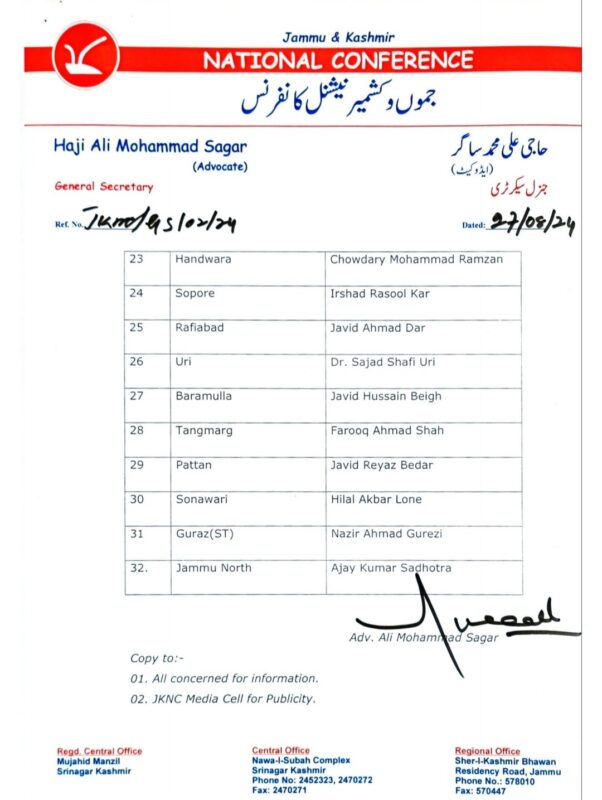 Jammu & Kashmir
NATIONAL CONFERENCE
جموں و کشمیر نیشنل کانفرنس
Haji Ali Mohammad Sagar
(Advocate)
General Secretary
حاجی علی محمد ساگر
(ایڈوکیٹ)
جنرل سیکرٹری
Ref. No. JKNC/GS/02/24
Dated: 27/08/24
23 Handwara Chowdary Mohammad Ramzan
24 Sopore Irshad Rasool Kar
25 Rafiabad Javid Ahmad Dar
26 Uri Dr. Sajad Shafi Uri
27 Baramulla Javid Hussain Beigh
28 Tangmarg Farooq Ahmad Shah
29 Pattan Javid Reyaz Bedar
30 Sonawari Hilal Akbar Lone
31 Guraz(ST) Nazir Ahmad Gurezi
32. Jammu North Ajay Kumar Sadhotra
Adv. Ali Mohammad Sagar
Copy to:-
01. All concerned for information.
02. JKNC Media Cell for Publicity.
Regd. Central Office
Mujahid Manzil
Srinagar Kashmir
Central Office
Nawa-I-Subah Complex
Srinagar Kashmir
Phone No: 2452323, 2470272
Fax: 2470271
Regional Office
Sher-I-Kashmir Bhawan
Residency Road, Jammu
Phone No.: 578010
Fax: 570447